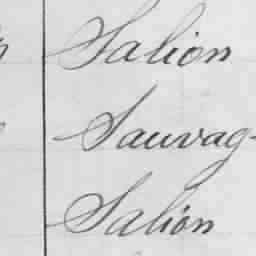 Salion
Sauvag-
Salion